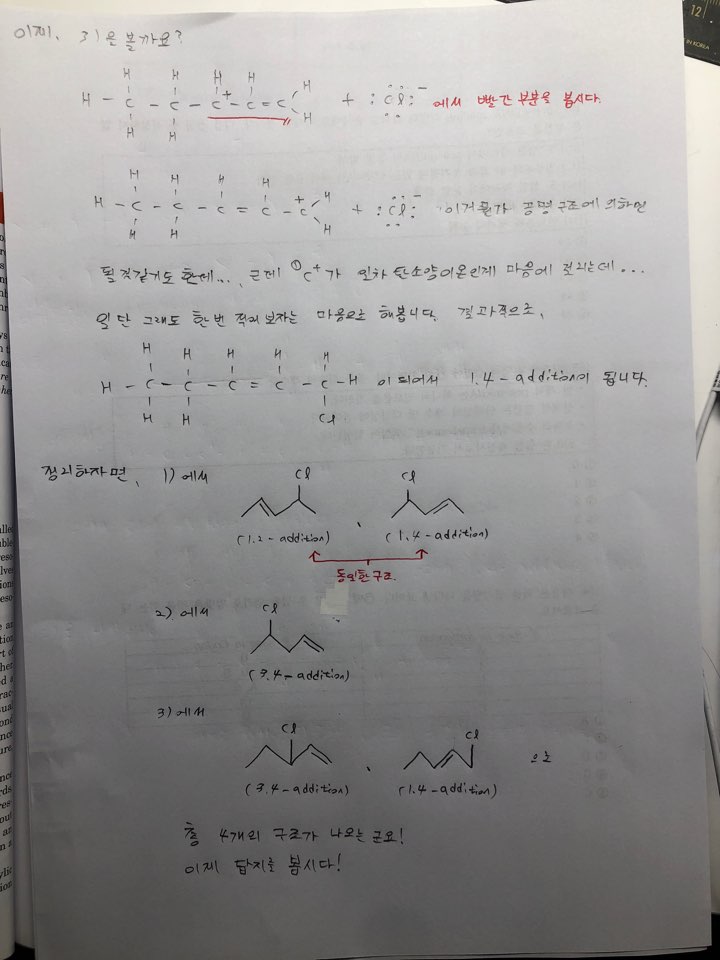 이제, 3)을 볼까요?
H H H H
H - C - C - C⁺ - C = C H + :Cl:⁻ 에서 빨간 부분을 봅시다.
H H H
H H H H
H - C - C - C = C - C⁺ H + :Cl:⁻ 이거 뭔가 공명구조에 의하면
H H H
될 것 같기도 한데..., 근데 ①C⁺가 일차 탄소양이온인게 마음에 걸리는데...
일단 그래도 한번 적어보자는 마음으로 해봅니다. 결과적으로,
H H H H H
H - C - C - C = C - C - H 이 되어서 1.4-addition이 됩니다.
H H Cl
정리하자면, 1)에서
Cl Cl
(1.2-addition) , (1.4-addition)
동일한 구조.
2)에서
Cl
(3.4-addition)
3)에서
Cl Cl
, 으로
(3.4-addition) (1.4-addition)
총 4개의 구조가 나오는군요!
이제 답지를 봅시다!
12
IN KOREA